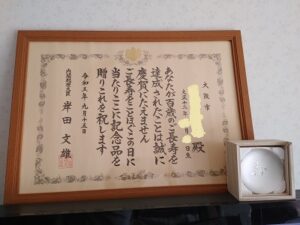 大阪市
殿
あなたが百歳のご長寿を
達成されたことは誠に
慶賀にたえません
ご長寿をことほぐこの日に
当たりここに記念品を
贈りこれを祝します
令和三年九月十五日
内閣総理大臣 岸田文雄